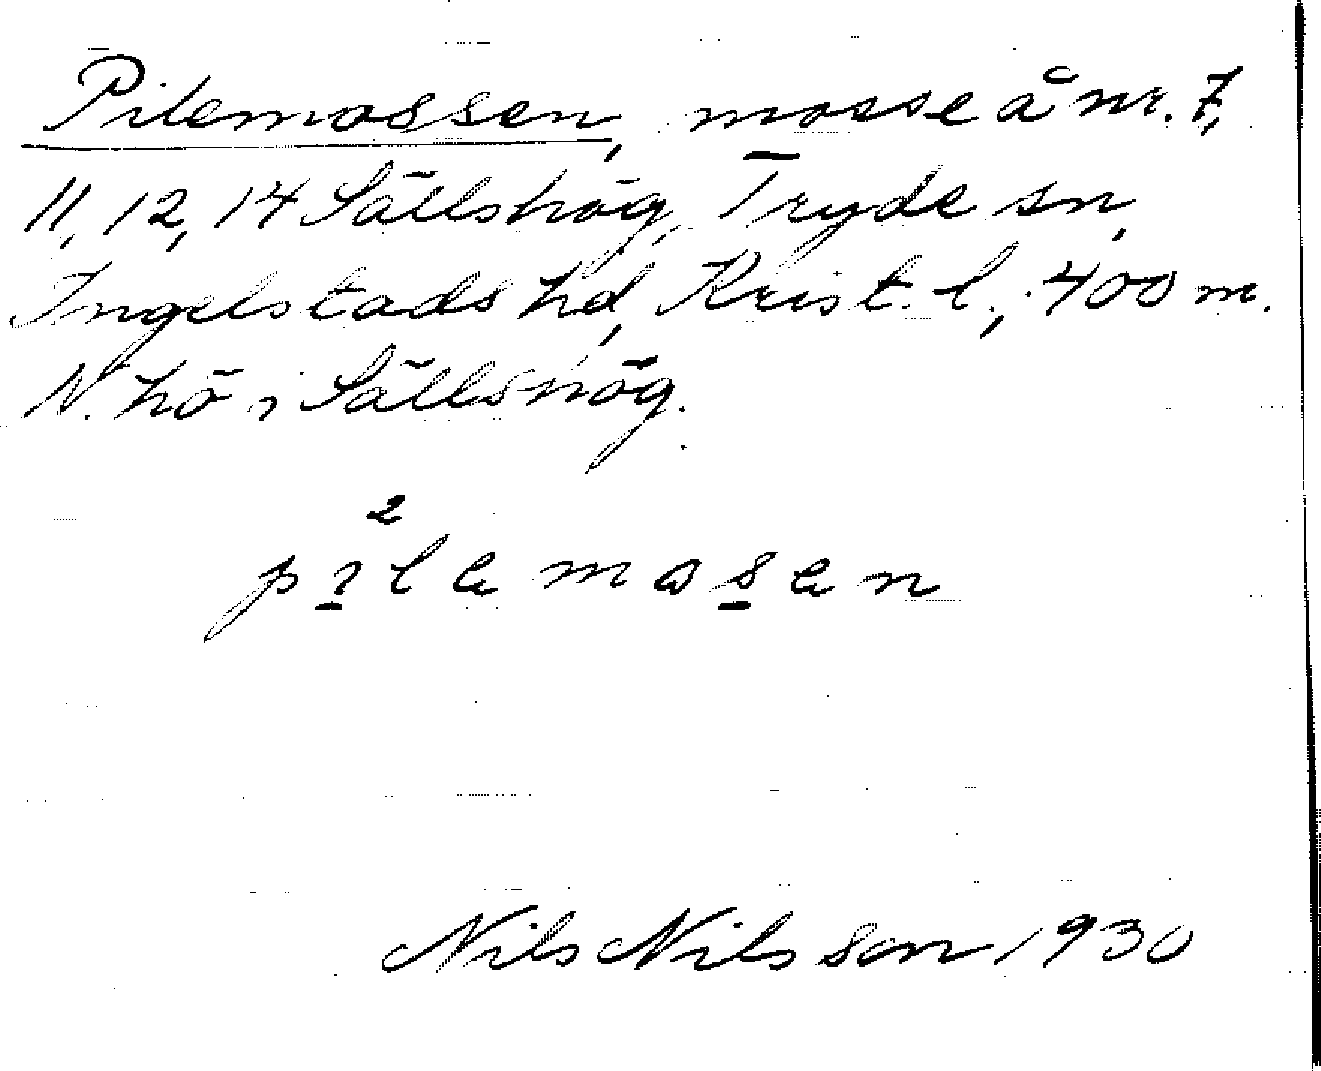 Pilemossen, mosse å nr. 7,
11, 12, 14 Sällshög, Tryde sn,
Ingelstads hd, Krist. l., 400 m.
N. hö i Sällshög.
2
pilamosan
Nils Nilsson, 1930